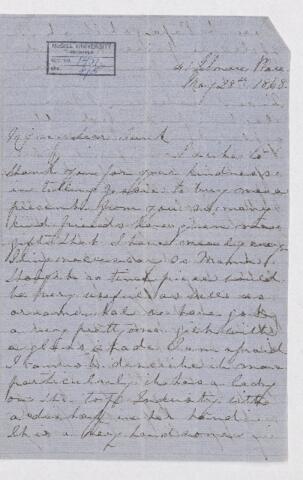 McGILL UNIVERSITY
ACC. NO.
Place
May 28th 1868.
My dear Aunt
I write to
thank you for your kindness
in telling to buy me a
present from you so many
kind friends have given me
gifts that I have nearly every
thing necessary so Mamma
thought a time piece would
be very useful as well as
ornamental we have got
a very pretty one gilt with
a glass shade I am afraid
I cannot describe it more
particularly it has a lady
on the top with
a in her hand
It is a very handsome